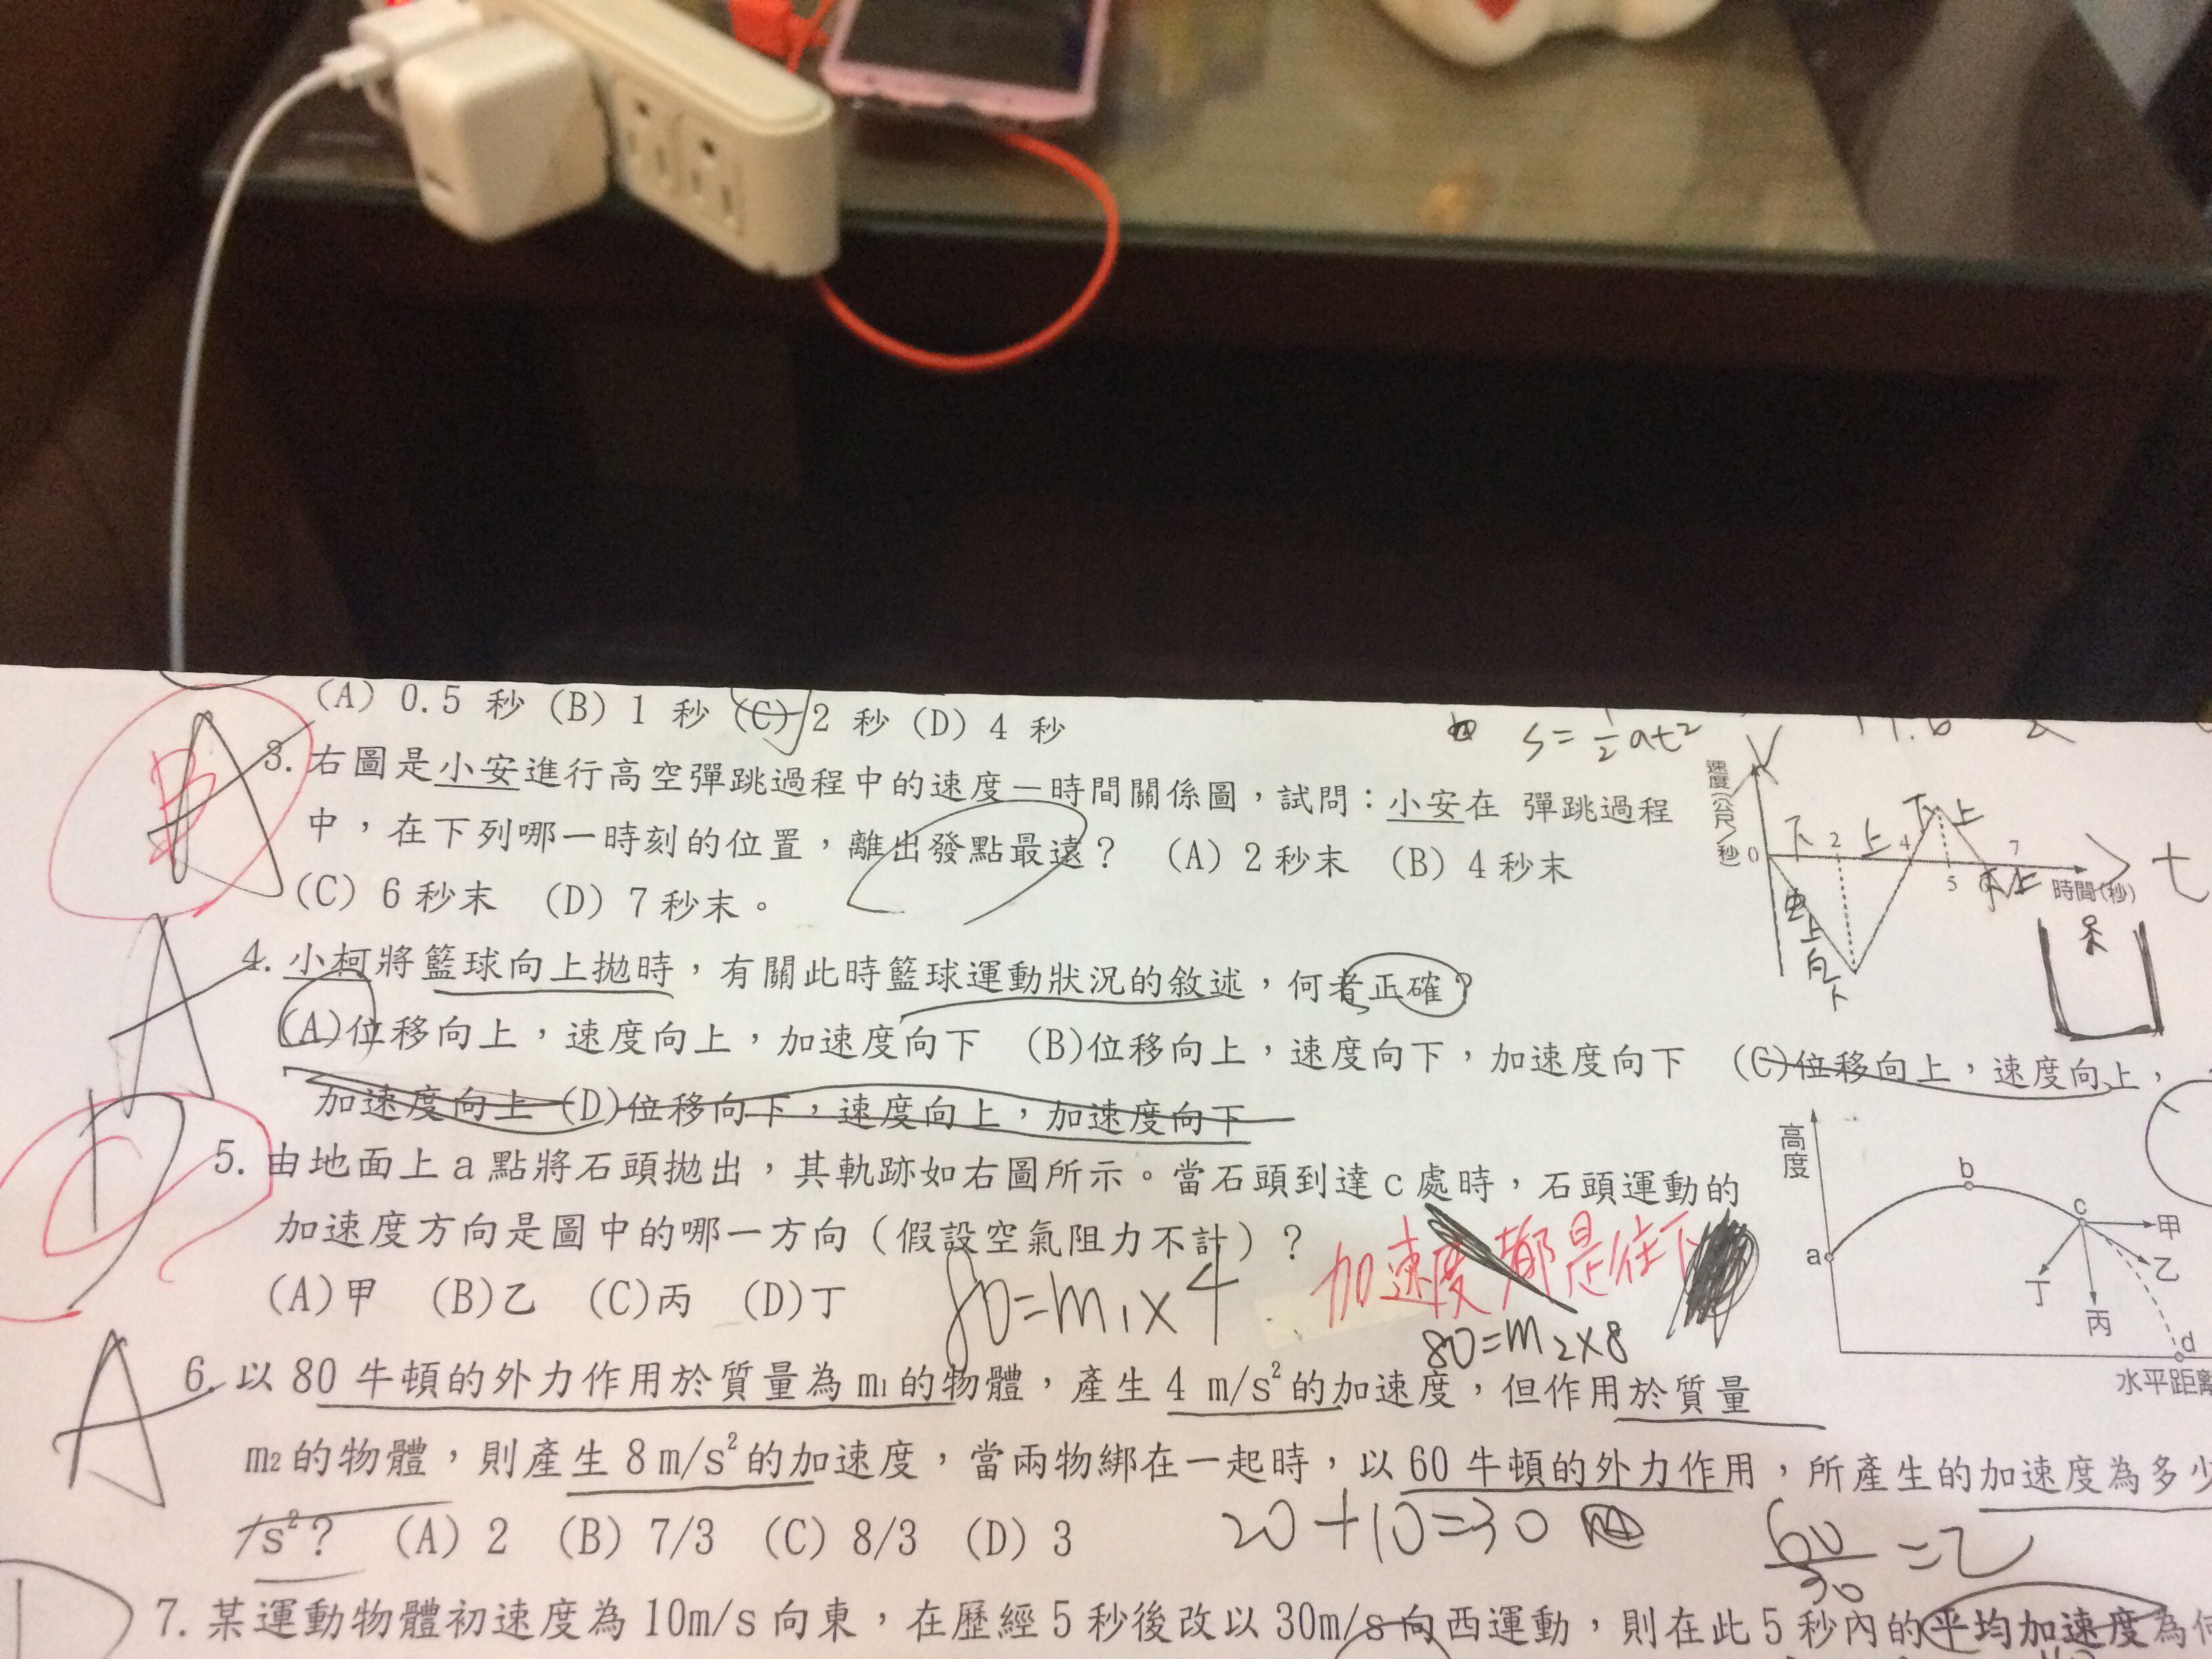 (A) 0.5 秒 (B) 1 秒 (C) 2 秒 (D) 4 秒
S = 1/2 at²
B
A
3. 右圖是小安進行高空彈跳過程中的速度－時間關係圖，試問：小安在 彈跳過程
中，在下列哪一時刻的位置，離出發點最遠？ (A) 2秒末 (B) 4秒末
(C) 6秒末 (D) 7秒末。
速度(公尺/秒)
0 下 2 上 4 下 上 7
5 時間(秒) t
A
4. 小柯將籃球向上拋時，有關此時籃球運動狀況的敘述，何者正確？
(A)位移向上，速度向上，加速度向下 (B)位移向上，速度向下，加速度向下 (C)位移向上，速度向上，
加速度向上 (D)位移向下，速度向上，加速度向下
D
C
5. 由地面上a點將石頭拋出，其軌跡如右圖所示。當石頭到達c處時，石頭運動的
加速度方向是圖中的哪一方向（假設空氣阻力不計）？
(A)甲 (B)乙 (C)丙 (D)丁
加速度都是往下
高度
b
c
甲
a
乙
丁
丙
d
水平距離
80=m₁×4
80=m₂×8
A
6. 以 80 牛頓的外力作用於質量為 m₁ 的物體，產生 4 m/s² 的加速度，但作用於質量
m₂ 的物體，則產生 8 m/s² 的加速度，當兩物綁在一起時，以 60 牛頓的外力作用，所產生的加速度為多少
/s²？ (A) 2 (B) 7/3 (C) 8/3 (D) 3
20+10=30
60/30 =2
D
7. 某運動物體初速度為 10m/s 向東，在歷經 5 秒後改以 30m/s 向西運動，則在此 5 秒內的平均加速度為何